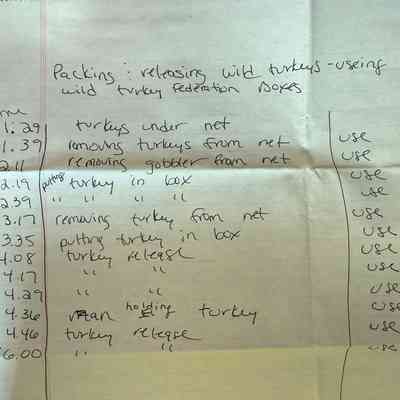 Packing: releasing wild turkeys - useing
wild turkey Federation Boxes
me
1.29 turkeys under net
1.39 removing turkeys from net use
2.11 removing gobbler from net use
2.19 putting turkey in box use
2.39 " " " " use
3.17 removing turkey from net use
3.35 putting turkey in box use
4.08 turkey release use
4.17 " " use
4.29 " " use
4.36 man holding turkey use
4.46 turkey release use
6.00 " " use